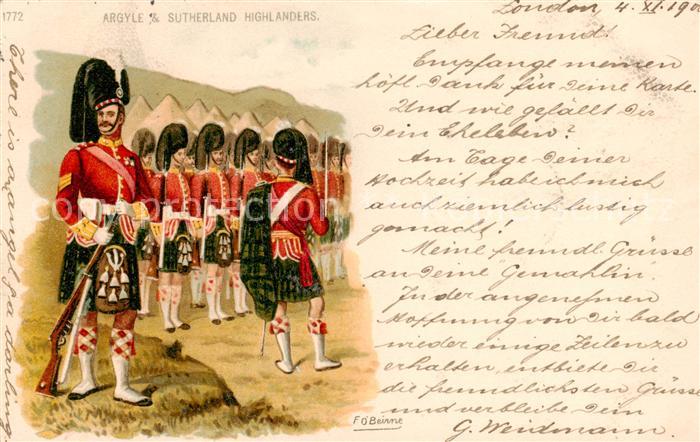 1772
ARGYLE & SUTHERLAND HIGHLANDERS.
London 4. XI. 190
Lieber Freund!
Empfange meinen
höfl. Dank für Deine Karte.
Und wie gefällt Dir
Dein Eheleben?
Am Tage Deiner
Hochzeit habe ich mich
auch ziemlich lustig
gemacht!
Meine freundl. Grüsse
an Deine Gemahlin.
In der angenehmen
Hoffnung von Dir bald
wieder einige Zeilen zu
erhalten, entbiete Dir
die freundlichsten Grüsse
und verbleibe Dein
G. Weidmann.
F. O'Beirne
There is an angel ga darling
Copyright protection by